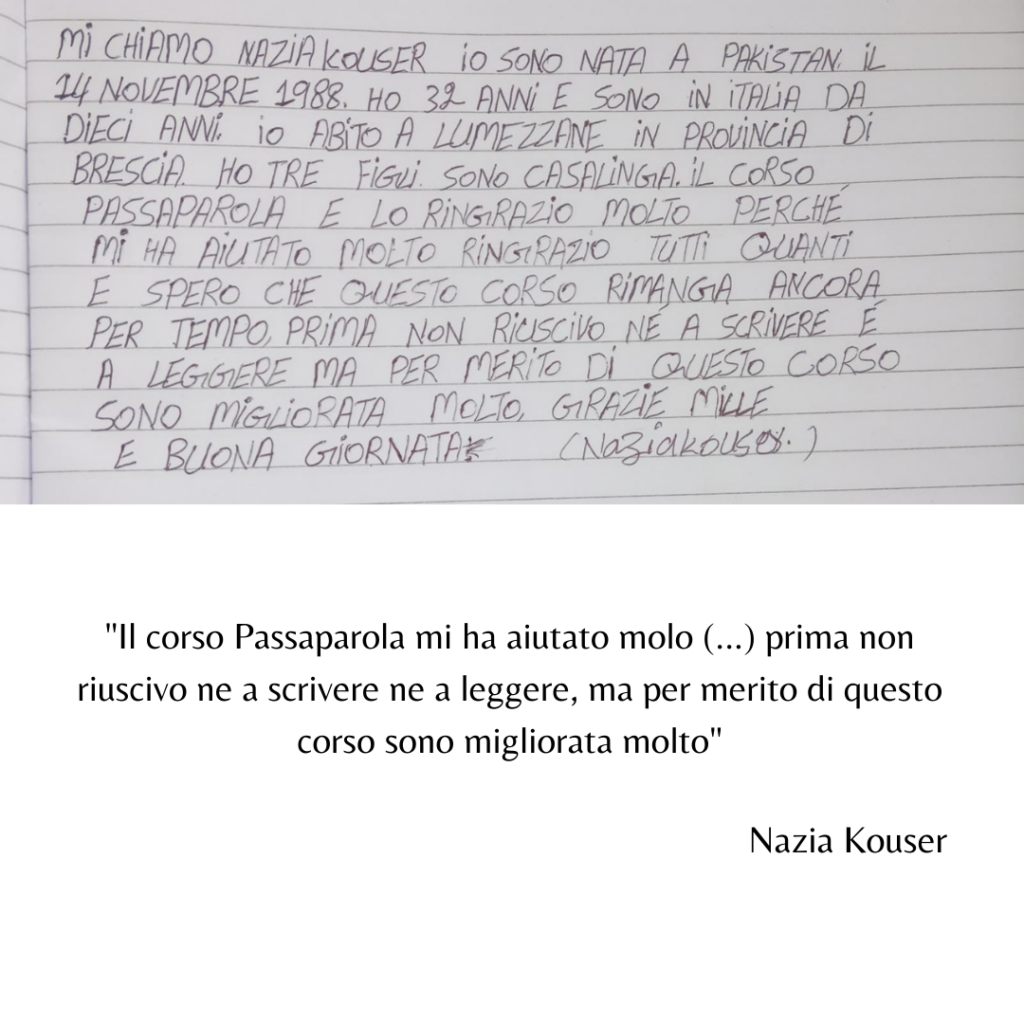 MI CHIAMO NAZIA KOUSER IO SONO NATA A PAKISTAN. IL
14 NOVEMBRE 1988. HO 32 ANNI E SONO IN ITALIA DA
DIECI ANNI. IO ABITO A LUMEZZANE IN PROVINCIA DI
BRESCIA. HO TRE FIGLI. SONO CASALINGA. IL CORSO
PASSAPAROLA E LO RINGRAZIO MOLTO PERCHÉ
MI HA AIUTATO MOLTO RINGRAZIO TUTTI QUANTI
E SPERO CHE QUESTO CORSO RIMANGA ANCORA
PER TEMPO, PRIMA NON RIUSCIVO NÉ A SCRIVERE É
A LEGGERE MA PER MERITO DI QUESTO CORSO
SONO MIGLIORATA MOLTO, GRAZIE MILLE
E BUONA GIORNATA (Naziakouser.)
"Il corso Passaparola mi ha aiutato molo (...) prima non
riuscivo ne a scrivere ne a leggere, ma per merito di questo
corso sono migliorata molto"
Nazia Kouser